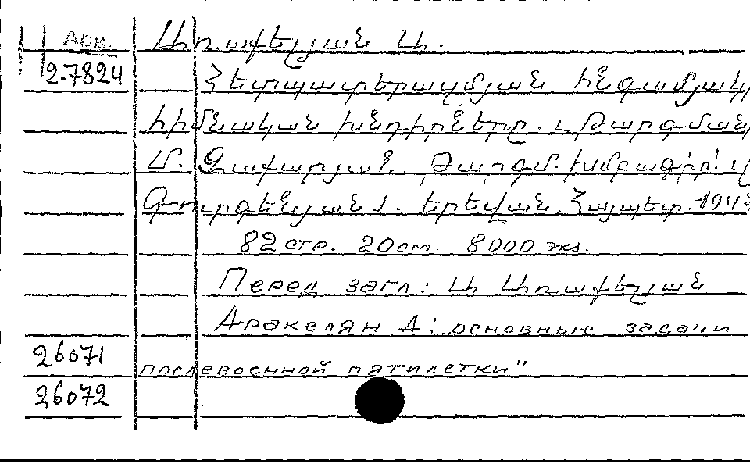 АСП. Առաքելյան Ա.
2-7824 Հետպատերազմյան հնգամյակի
հիմնական խնդիրները. Թարգման
Մ. Զաքարյան. Թարգմ. խմբագիր՝
Գուրգենյան. Երևան. Հայպետ. 194
82 стр. 20 см. 8000 экз.
Перед загл: Ա Առաքելյան
Аракелян А: основных задачи
26071 послевоенной пятилетки"
26072